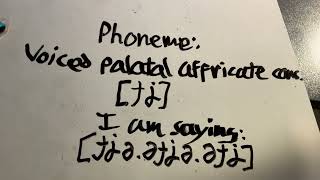 Phoneme:
Voiced palatal affricate cons.
[ɟʝ]
I am saying:
[ɟʝə.əɟʝə.əɟʝ]